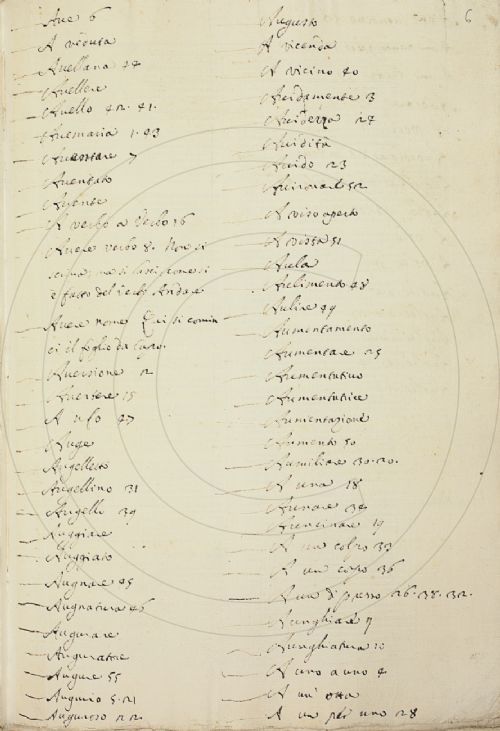 6
Ave 6
A veduta
Avellana 44
Avellere
Avello 42. 41.
Avemaria 1. 43
Aventare 7
Aventato
Avente
A verbo a verbo 16
Avere verbo
è fatto del verbo Andare
Avere nome Qui si comin
ci il foglio da capo.
Aversione 2
Avertere 15
A ufo 47
Auge
Augelletto
Augellino 31
Augello 39
Auggiare
Auggiato
Augnare 45
Augnatura 46
Augurare
Auguratore
Augure 55
Augurio 5. 21
Auguroso 22
Augusto
A vicenda
A vicino 40
Avidamente 3
Avidezza 24
Avidità
Avido 23
A viso aperto
A vista 51
Aula
Aulimento 48
Aulire 49
Aumentamento
Aumentare 25
Aumentativo
Aumentatrice
Aumentazione
Aumento 50
Aumiliare 30. 20.
A una 18
Aunare 34
Auncinare 19
A un colpo 33
A un corpo 36
A un di presso 26. 38. 32.
Aunghiare
Aunghiatura
A uno a uno 4
A un' otta
A un per uno 28